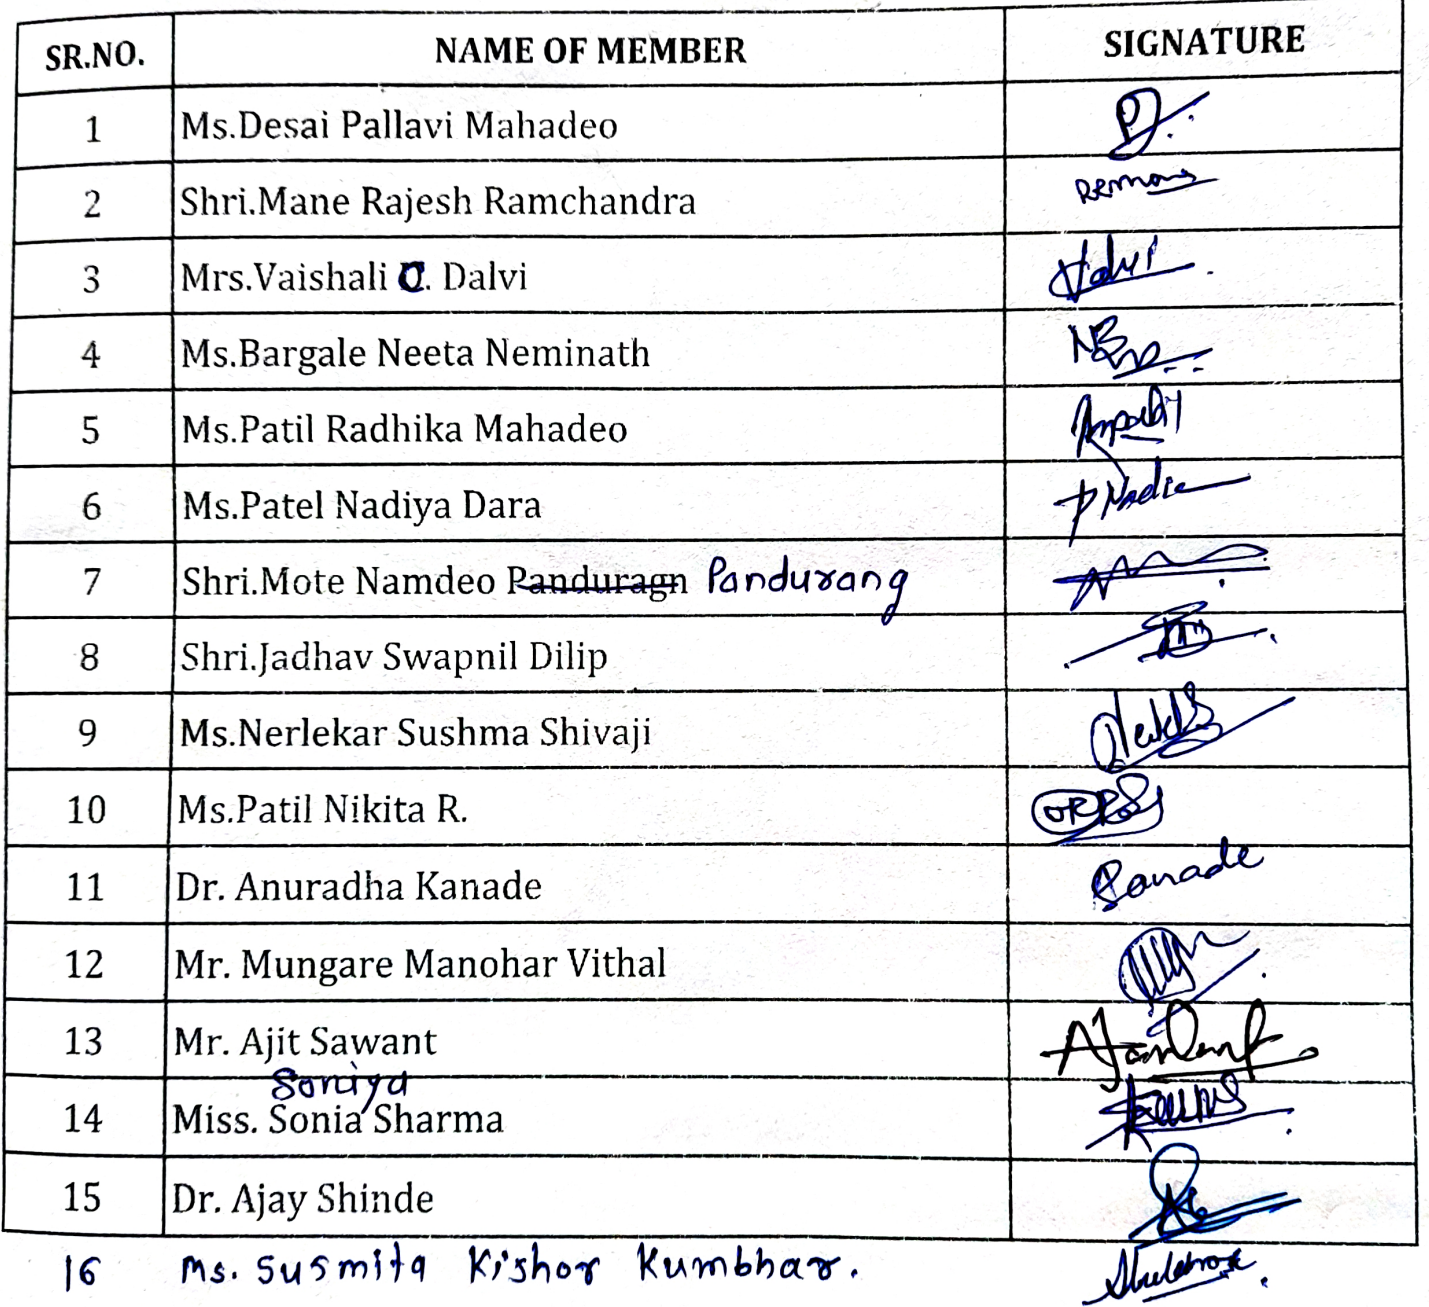 SR.NO. NAME OF MEMBER SIGNATURE
1 Ms.Desai Pallavi Mahadeo
2 Shri.Mane Rajesh Ramchandra
3 Mrs.Vaishali C. Dalvi
4 Ms.Bargale Neeta Neminath
5 Ms.Patil Radhika Mahadeo
6 Ms.Patel Nadiya Dara
7 Shri.Mote Namdeo Panduragn Pandurang
8 Shri.Jadhav Swapnil Dilip
9 Ms.Nerlekar Sushma Shivaji
10 Ms.Patil Nikita R.
11 Dr. Anuradha Kanade
12 Mr. Mungare Manohar Vithal
13 Mr. Ajit Sawant
Soniya
14 Miss. Sonia Sharma
15 Dr. Ajay Shinde
16 Ms. Susmita Kishor Kumbhar.